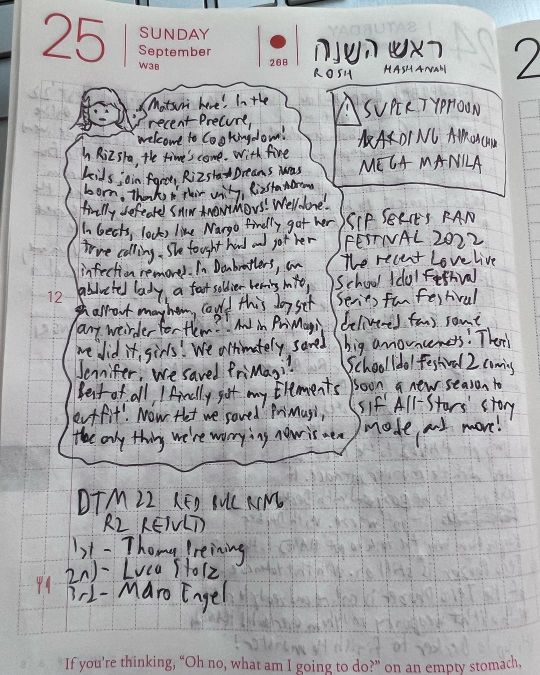 25
SUNDAY
September
W38
268
ראש השנה
ROSH HASHANAH
2
Matsuri here! In the
recent Precure,
welcome to Cookingdom!
In RizSta, the time's come. With five
kids, join forces, RizSta Dreams was
born. Thanks to their unity, RizSta Dreams
finally defeated SHIN ANONIMOUS! Well done!
In Geats, looks like Nargo finally got her
true calling. She fought hard and got her
infection removed. In Donbrothers, an
abducted lady, a foot soldier
an all out mayhem, could this day get
any weirder for them? And in PriMagi,
we did it, girls! We ultimately saved
Jennifer. We saved PriMagi!
Best of all, I finally got my Elements
outfit! Now that we saved PriMagi,
the only thing we're worrying now is
SUPER TYPHOON
KARDING APPROACHING
MEGA MANILA
SIF SERIES FAN
FESTIVAL 2022
The recent Love Live
School Idol Festival
Series Fan Festival
delivered fans some
big announcements! There's
School Idol Festival 2 coming
soon, a new season to
SIF All-Stars' story
mode, and more!
12
DTM 22 RED BULL RING
R2 RESULTS
1st - Thomas Preining
2nd - Luca Stolz
3rd - Maro Engel
If you're thinking, "Oh no, what am I going to do?" on an empty stomach,